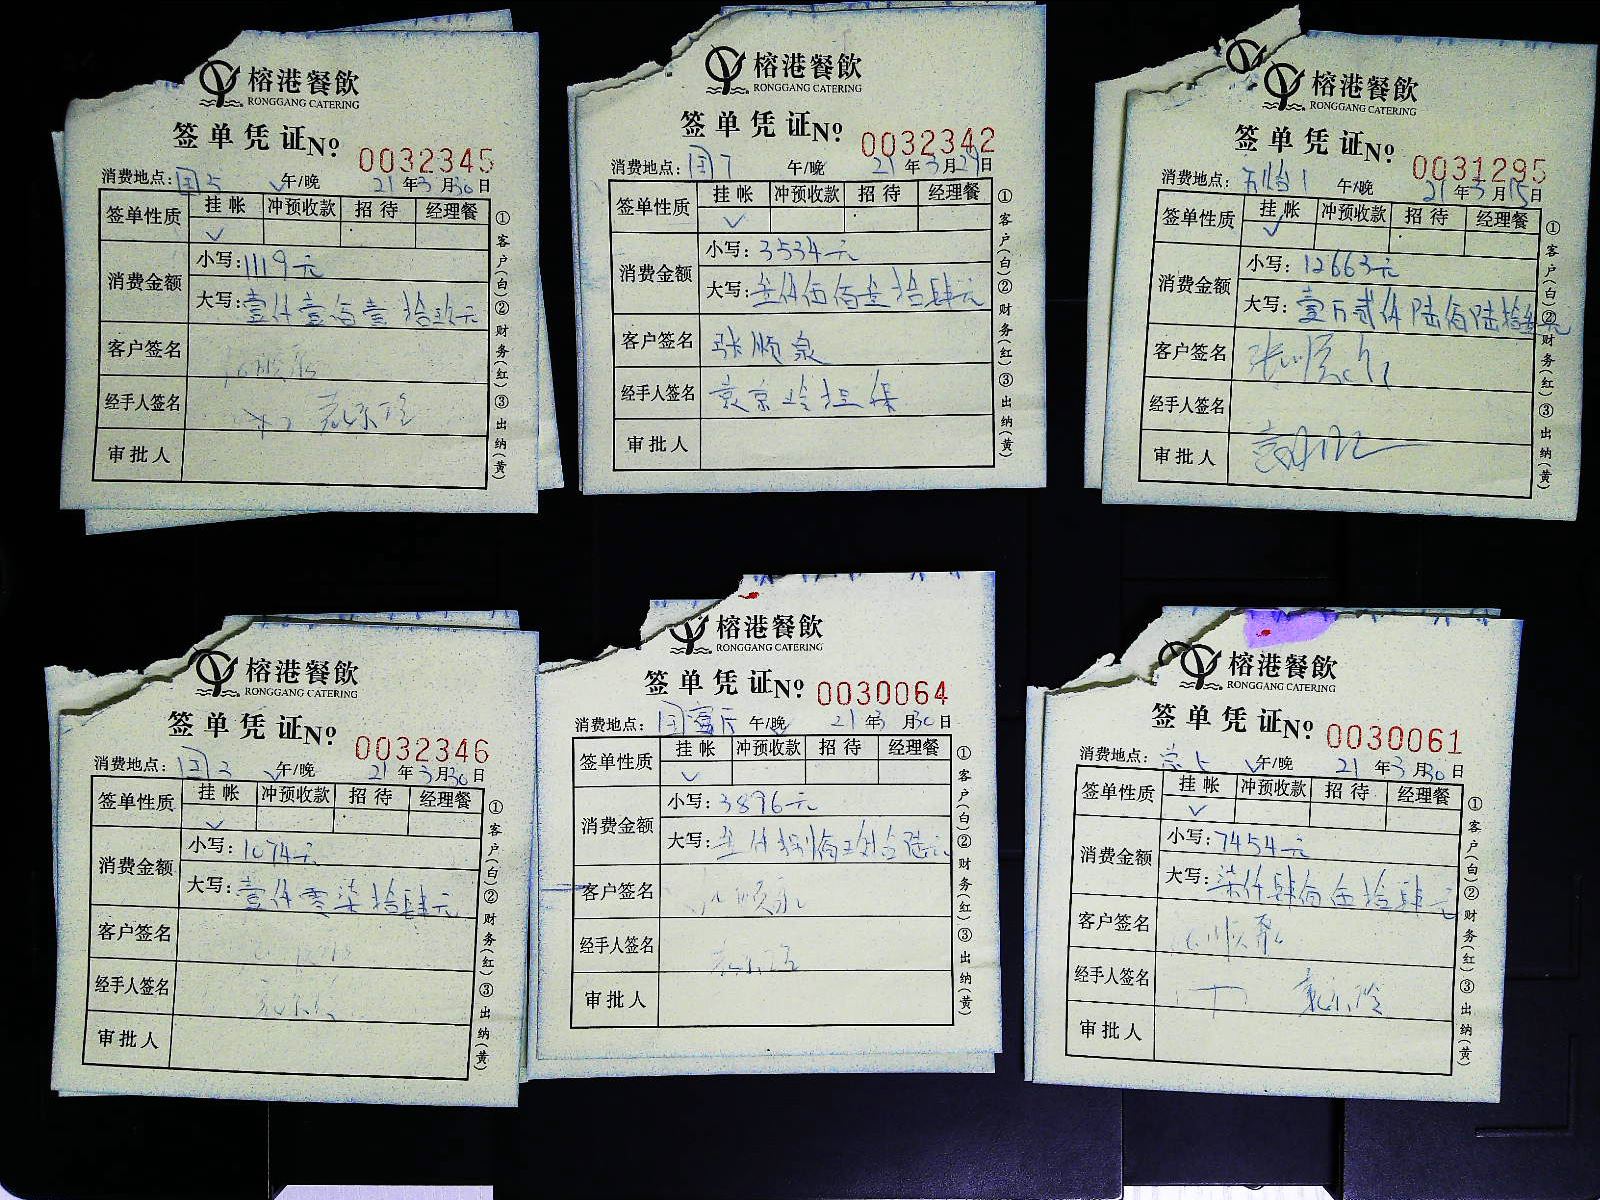 榕港餐飲
RONGGANG CATERING
签单凭证 № 0032345
消费地点: 国5 午/晚 21年3月30日
签单性质 挂帐 冲预收款 招待 经理餐
✓
消费金额 小写: 1119元
大写: 壹仟壹佰壹拾玖元
客户签名
经手人签名 袁京玲
审批人
①客户(白)②财务(红)③出纳(黄)
榕港餐飲
RONGGANG CATERING
签单凭证 № 0032342
消费地点: 国7 午/晚 21年3月29日
签单性质 挂帐 冲预收款 招待 经理餐
✓
消费金额 小写: 3534元
大写: 叁仟伍佰叁拾肆元
客户签名 张顺泉
经手人签名 袁京玲担保
审批人
①客户(白)②财务(红)③出纳(黄)
榕港餐飲
RONGGANG CATERING
签单凭证 № 0031295
消费地点: 午/晚 21年3月15日
签单性质 挂帐 冲预收款 招待 经理餐
✓
消费金额 小写: 12663元
大写: 壹万贰仟陆佰陆拾叁元
客户签名
经手人签名
审批人
①客户(白)②财务(红)③出纳(黄)
榕港餐飲
RONGGANG CATERING
签单凭证 № 0032346
消费地点: 国2 午/晚 21年3月30日
签单性质 挂帐 冲预收款 招待 经理餐
✓
消费金额 小写: 1074元
大写: 壹仟零柒拾肆元
客户签名
经手人签名
审批人
①客户(白)②财务(红)③出纳(黄)
榕港餐飲
RONGGANG CATERING
签单凭证 № 0030064
消费地点: 国宴厅 午/晚 21年3月30日
签单性质 挂帐 冲预收款 招待 经理餐
✓
消费金额 小写: 3896元
大写: 叁仟捌佰玖拾陆元
客户签名
经手人签名
审批人
①客户(白)②财务(红)③出纳(黄)
榕港餐飲
RONGGANG CATERING
签单凭证 № 0030061
消费地点: 午/晚 21年3月30日
签单性质 挂帐 冲预收款 招待 经理餐
✓
消费金额 小写: 7454元
大写: 柒仟肆佰伍拾肆元
客户签名
经手人签名 袁京玲
审批人
①客户(白)②财务(红)③出纳(黄)